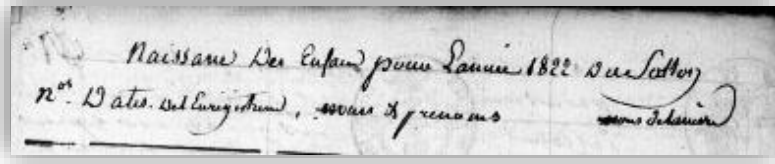 Naissance Des Enfans pour L'année 1822 Du
nos. Dates. del Enregistrement, noms & prenoms noms de